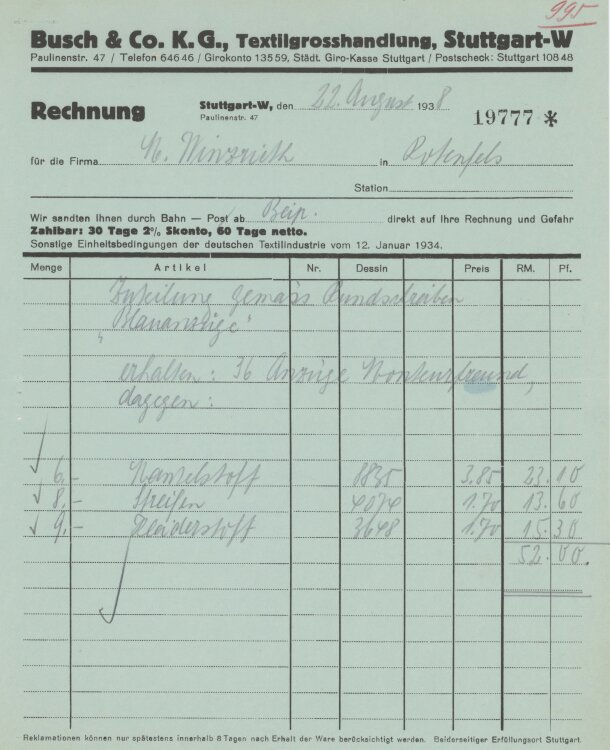 995
Busch & Co. K.G., Textilgrosshandlung, Stuttgart-W
Paulinenstr. 47 / Telefon 64646 / Girokonto 13559, Städt. Giro-Kasse Stuttgart / Postscheck: Stuttgart 10848
Rechnung
Stuttgart-W, den 22. August 1938
Paulinenstr. 47
19777 *
für die Firma N. in Rotenfels
Station
Wir sandten Ihnen durch Bahn — Post ab direkt auf Ihre Rechnung und Gefahr
Zahlbar: 30 Tage 2% Skonto, 60 Tage netto.
Sonstige Einheitsbedingungen der deutschen Textilindustrie vom 12. Januar 1934.
Menge Artikel Nr. Dessin Preis RM. Pf.
Zuteilung gemäss Rundschreiben
"Blauanzüge"
erhalten: 36 Anzüge
dagegen:
6,- Mantelstoff 8835 3.85 23.10
8,- Streifen 4074 1.70 13.60
9,- Kleiderstoff 3648 1.70 15.30
52.00.
Reklamationen können nur spätestens innerhalb 8 Tagen nach Erhalt der Ware berücksichtigt werden. Beiderseitiger Erfüllungsort Stuttgart.